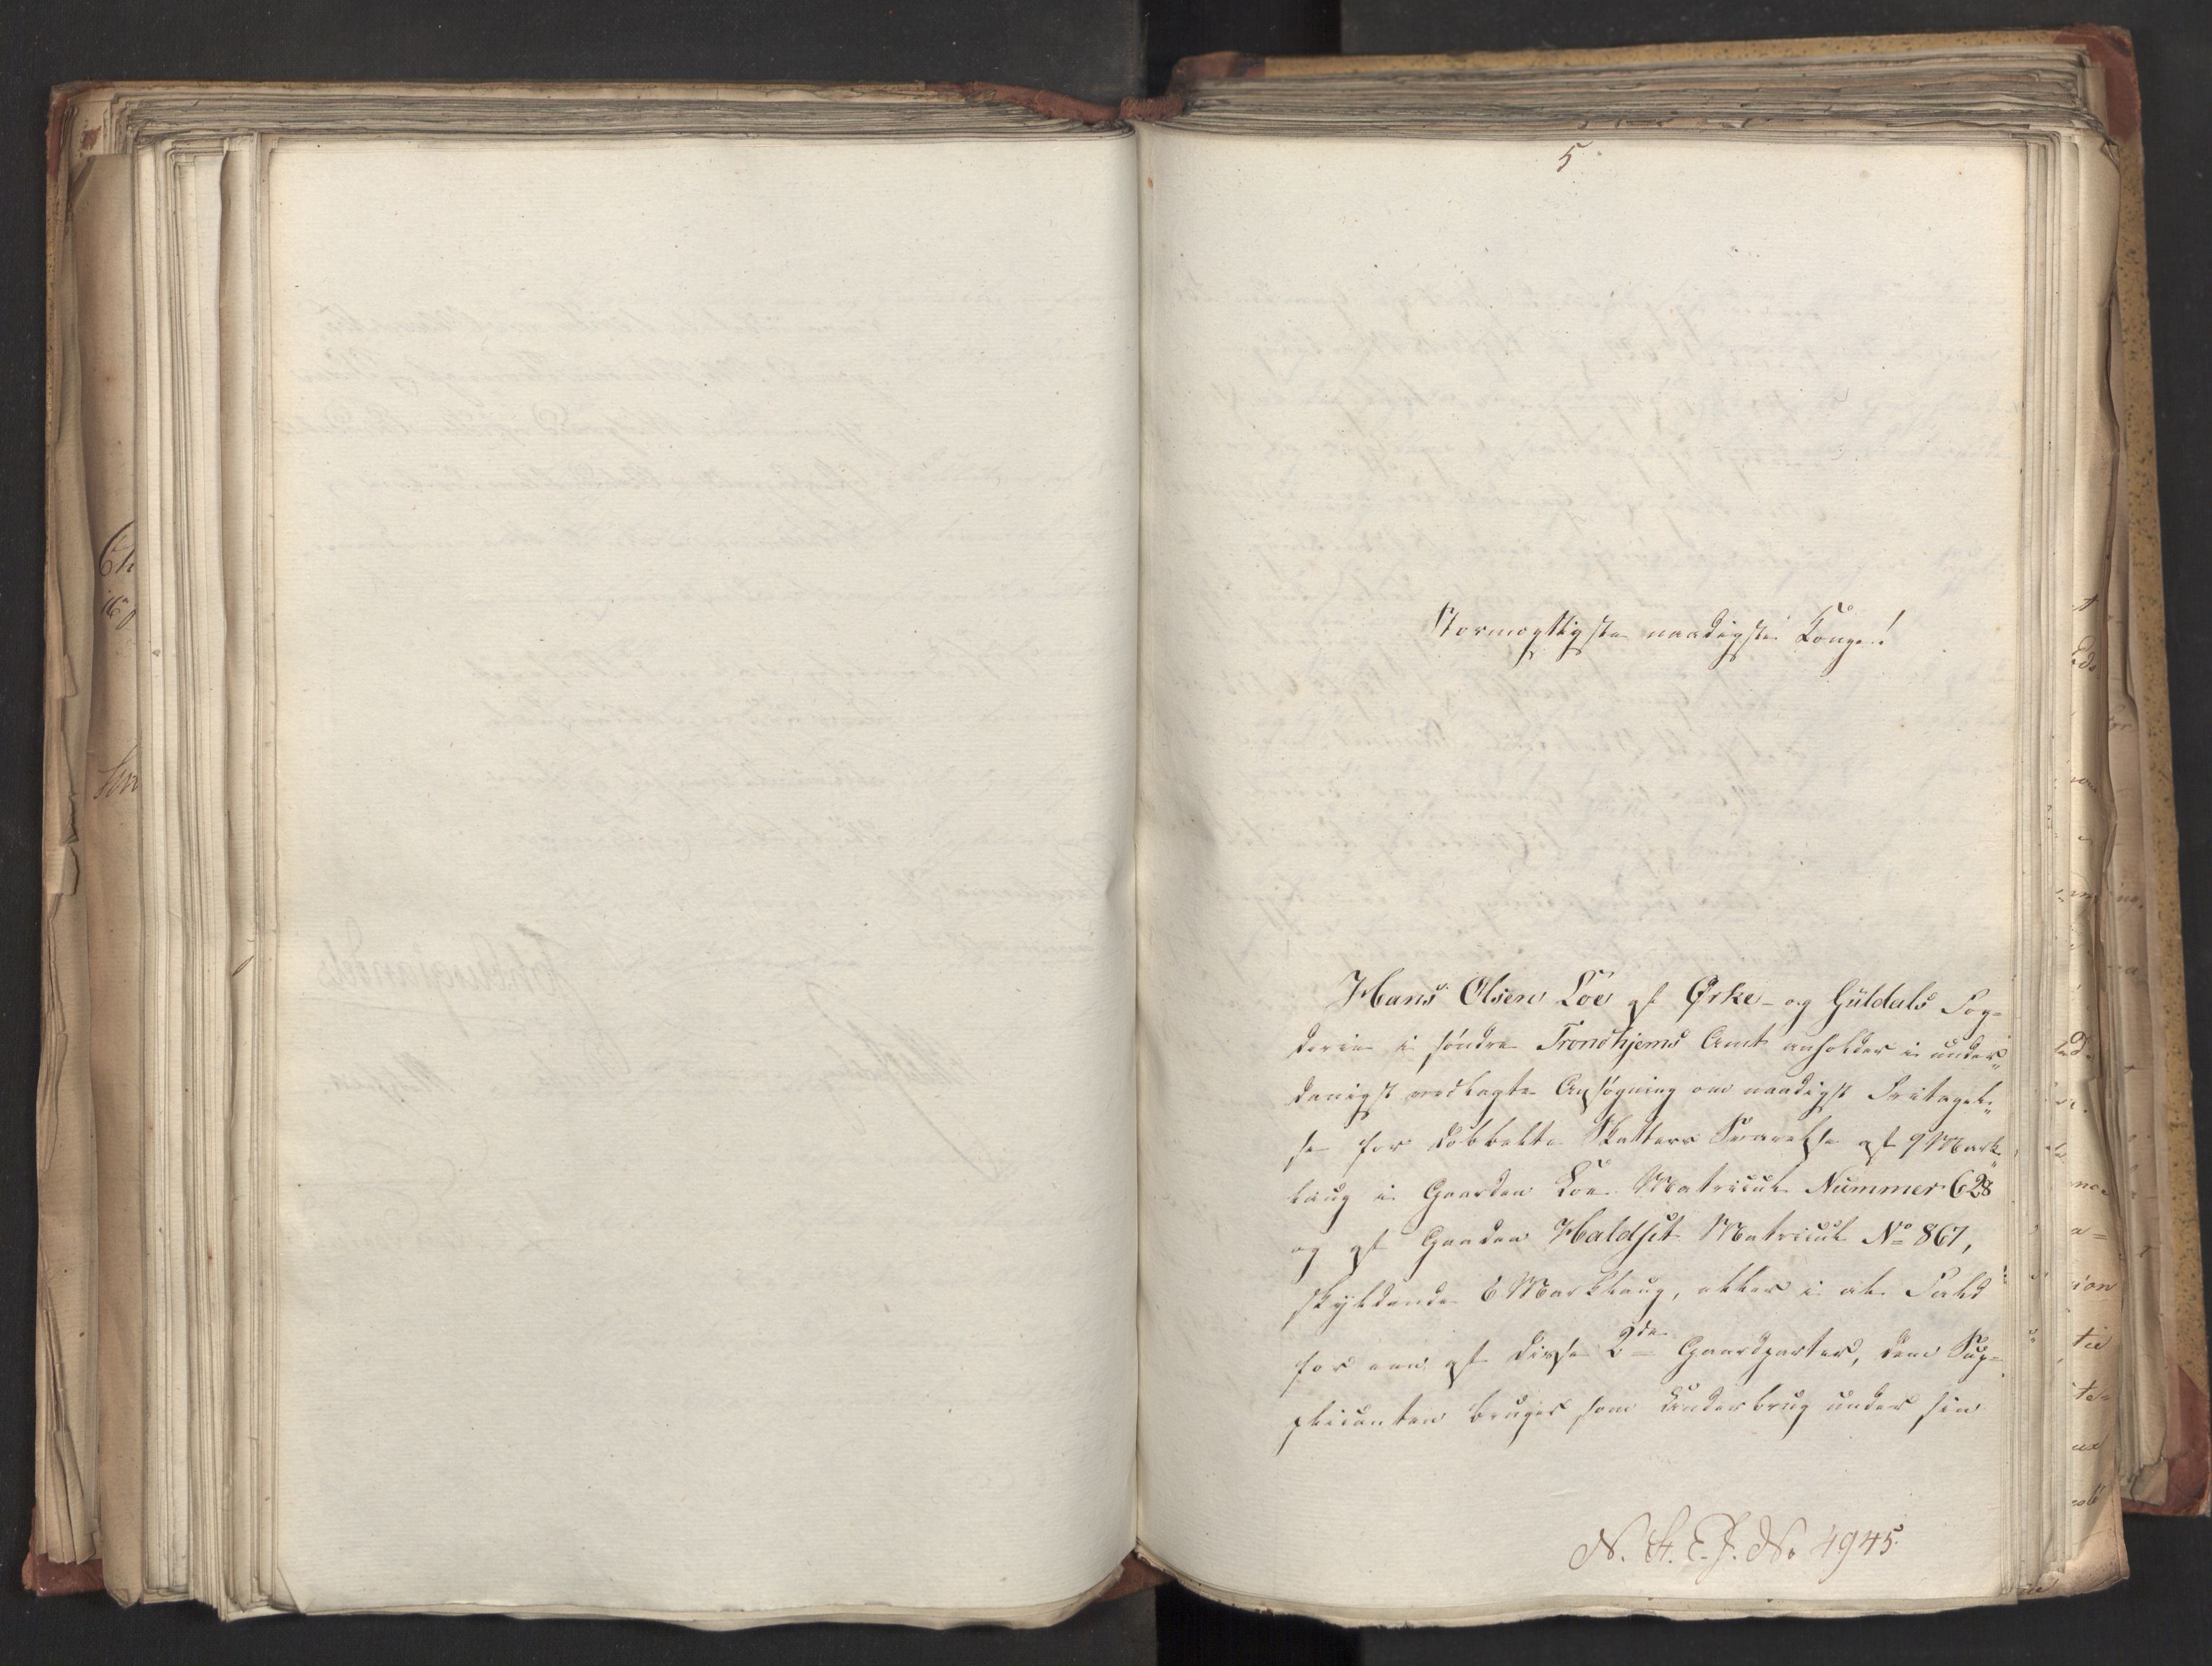 5.
Stormægtigste naadigste Konge!
Hans Olsen Loe af Ørke- og Güldals Fog-
derie i søndre Trondhjems Amt anholder i under„
danigst vedlagte Ansøgning om naadigst Fritagel„
se for dobbelte Skatters Svarelse af 9 Mark„
laug i Gaarden Loe Matricul Nummer 628
og af Gaarden Haldset Matricul No 867,
skyldende 6 Marklaug, eller i al Fald
for een af disse 2de Gaardparter, dem Sup-
plicanten bruger som Underbrug under sin
N. St. E. J. No 4945.